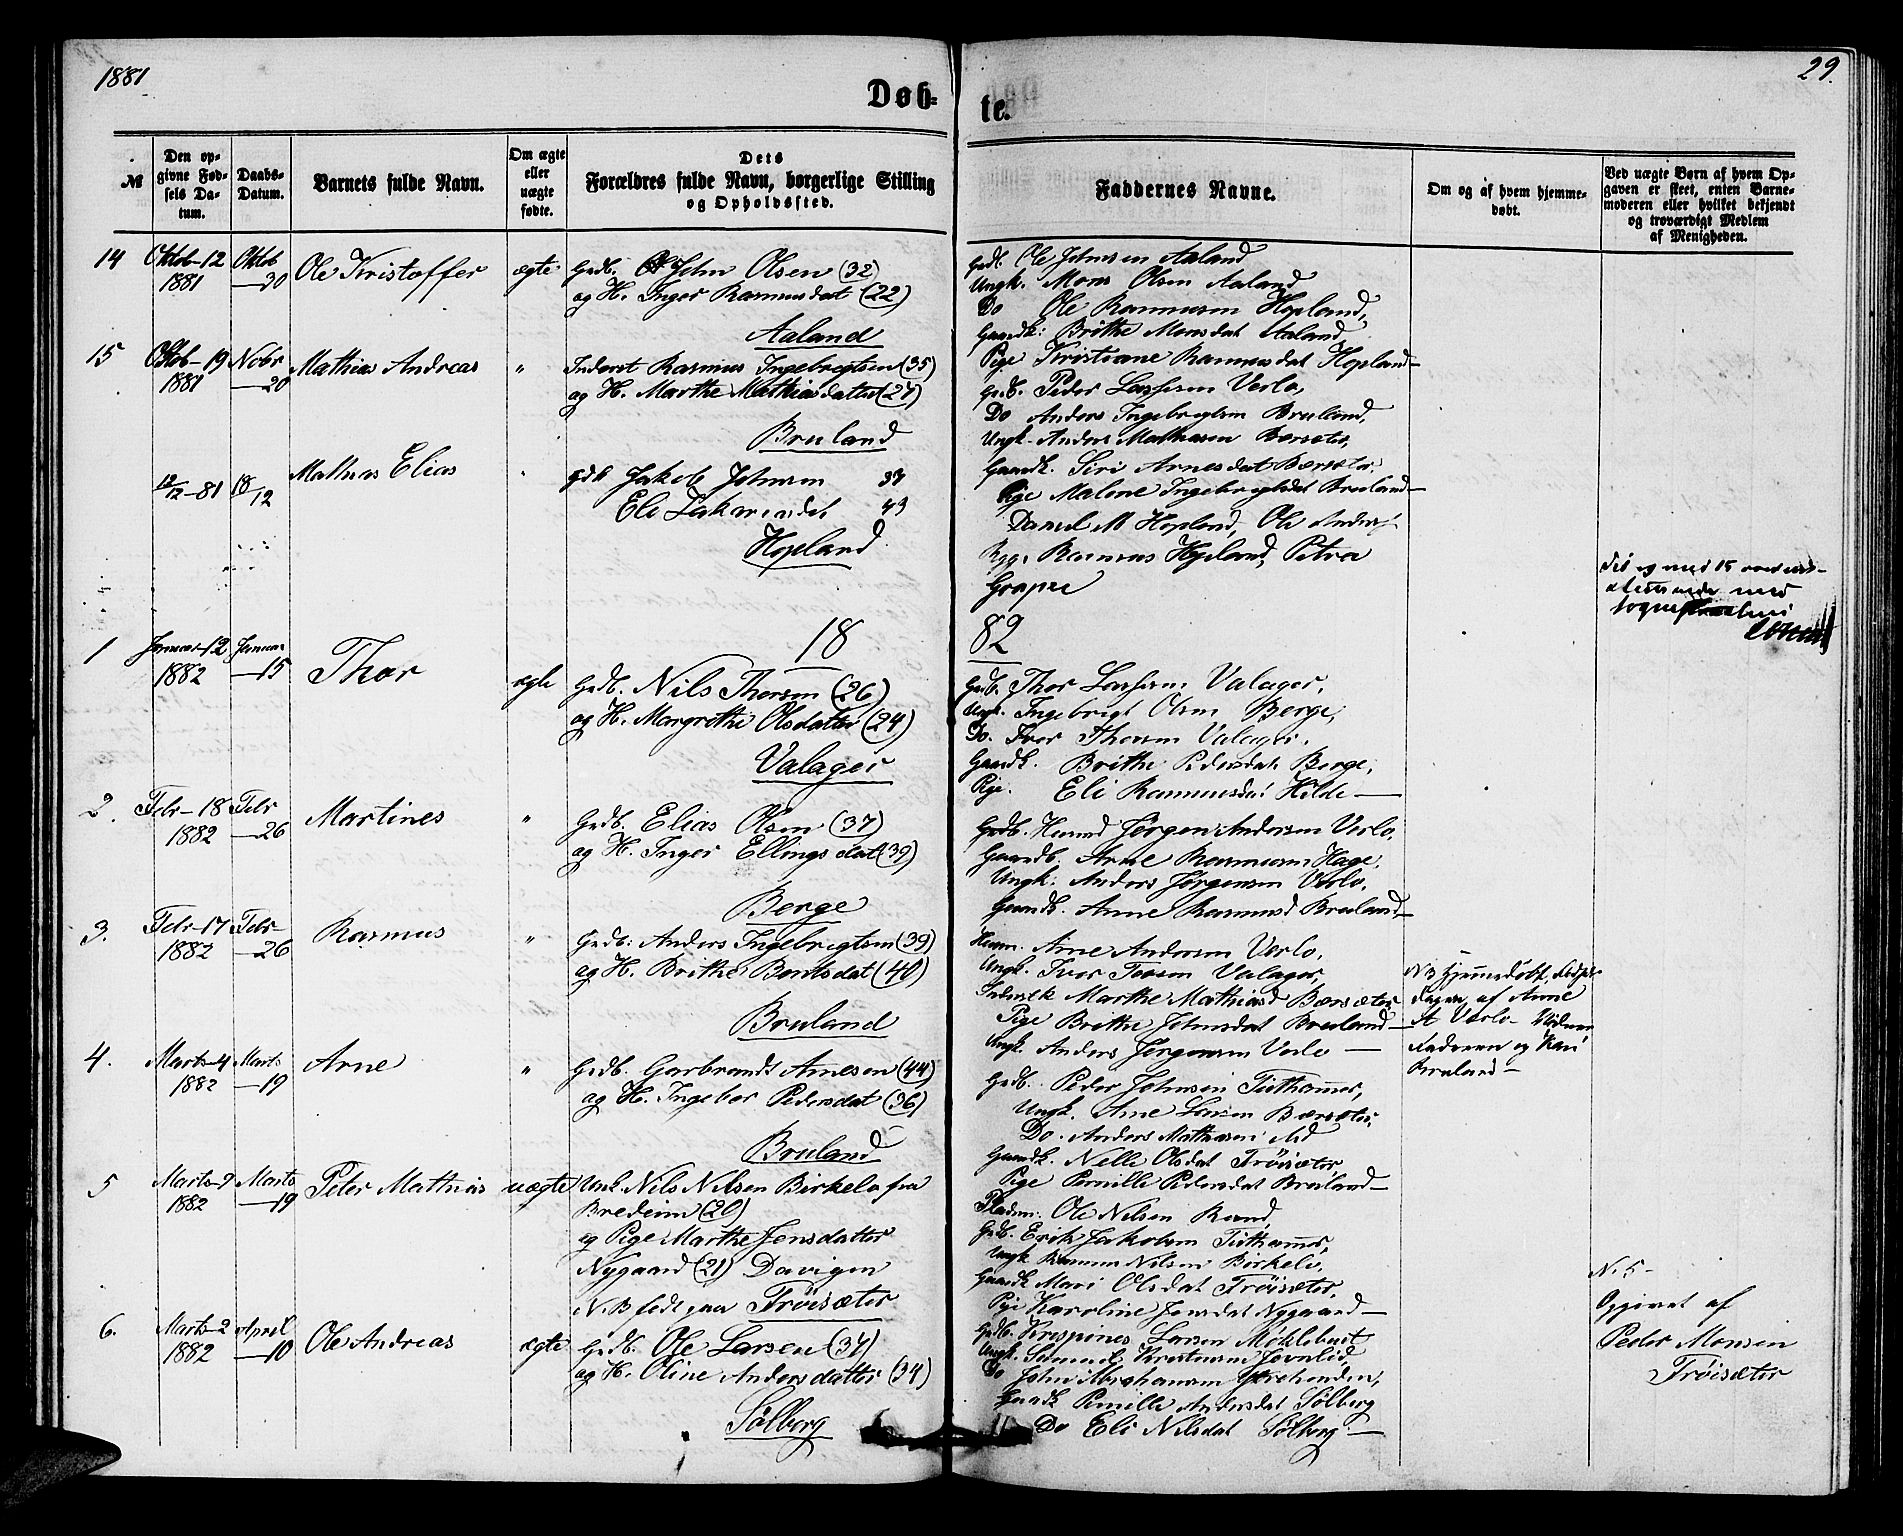 1881
29.
Døb-
te.
№
Den op-
givne Fød-
sels Da-
tum.
Daabs-
Datum.
Barnets fulde Navn.
Om ægte
eller
uægte
fødte.
Dets
Forældres fulde Navn, borgerlige Stilling
og Opholdssted.
Faddernes Navne.
Om og af hvem hjemme-
døbt.
Ved uægte Børn af hvem Op-
gaven er skeet, enten Barne-
moderen eller hvilket bekjendt
og troværdigt Medlem
af Menigheden.
14
Oktob-12
1881
Oktob
-30
Ole Kristoffer
ægte
Grdb. John Olsen (32)
og H. Inger Rasmusdat (22)
Aaland
Grdb. Ole Johnsen Aaland
Ungk. Mons Olsen Aaland
Do Ole Rasmusen Hopland,
Gaardk: Brithe Monsdat Aaland
Pige Kristiane Rasmusdat Hopland-
15
Oktob-19
1881
Nobr
-20
Mathias Andreas
"
Inderst Rasmus Ingebrigtsen (35)
og H. Marthe Mathiasdatter (27)
Bruland
Grdb. Peder Larsen Verlo,
Do Anders Ingebrigtsen Bruland,
Ungk. Anders Mathiasen Børsæter,
Gaardk. Siri Arnesdat Børsæter.
Pige Malene Ingebrigtsdat Bruland-
12/12-81
18/12
Mathias Elias
"
gdb Jakob Johnsen 39
Eli Zakariasdat 43
Hopland
Daniel M Hopland, Ole Anders
Rasmus Hopland, Petra
1882
1
Januar-12
1882
Januar
-15
Thor
ægte
Grdb. Nils Thorsen (26)
og H. Margrethe Olsdatter (24)
Valager
Grdb. Thor Larsen Valager,
Ungk. Ingebrigt Olsen Berge,
Do. Iver Thorsen Valager,
Gaardk. Brithe Pedersdat. Berge,
Pige. Eli Rasmusdat Hilde-
2.
Febr-18
1882
Febr
-26
Martines
"
Grdb. Elias Olsen (37)
og H. Inger Ellingsdat (39)
Berge
Grdb. Jørgen Andersen Verlo,
Gaardb. Arne Rasmusen Hage,
Ungk. Anders Jørgensen Verlo,
Gaardk. Anne Rasmusd Bruland-
3.
Febr-17
1882
Febr
-26
Rasmus
"
Grdb: Anders Ingebrigtsen (39)
og H. Brithe Bentsdat (40)
Bruland
Arne Andersen Verlo,
Ungk. Iver Torsen Valager,
Marthe Mathiasd Børsæter
Pige Brithe Johnsdat Bruland-
Ungk. Anders Jørgensen Verlo-
N 3 Hjemmedøbt
dagen, af Arne
A Verlo-
Faderen og Kari
Bruland-
4.
Marts-4
1882
Marts
-19
Arne
"
Grdb. Garbrandt Arnesen (44)
og H. Ingebor Pedersdat (36)
Bruland
Grdb. Peder Johnsen Tisthammer,
Ungk. Arne Larsen Børsæter,
Do. Anders Mathiasen
Gaardk. Nelle Olsdat Trøisæter,
Pige Pernille Pedersdat Bruland-
5
Marts-9
1882
Marts
-19
Peter Mathias
uægte
Unk. Nils Nilsen Birkelo fra
Bredeim (20)
og Pige Marthe Jensdatter
Nygaard (21) Davigen
N.B født paa Trøisæter
Ole Nilsen Rand,
Grdb. Erik Jakobsen Tisthammer,
Ungk Rasmus Nilsen Birkelo,
Gaardk Mari Olsdat Trøisæter,
Pige Karoline Jensdat Nygaard-
N. 5-
Opgivet af
Peder Monsen
Trøisæter
6.
Marts-2
1882
April
-10
Ole Andreas
ægte
Grdb. Ole Larsen (37)
og H. Oline Andersdatter (34)
Sølberg
Grdb. Krispines Larsen Møklebust
Ungk. Samuel
Do John Abrahamsen
Gaardk Pernille Andersdat Sølberg
Do Eli Nilsdat Sølberg-